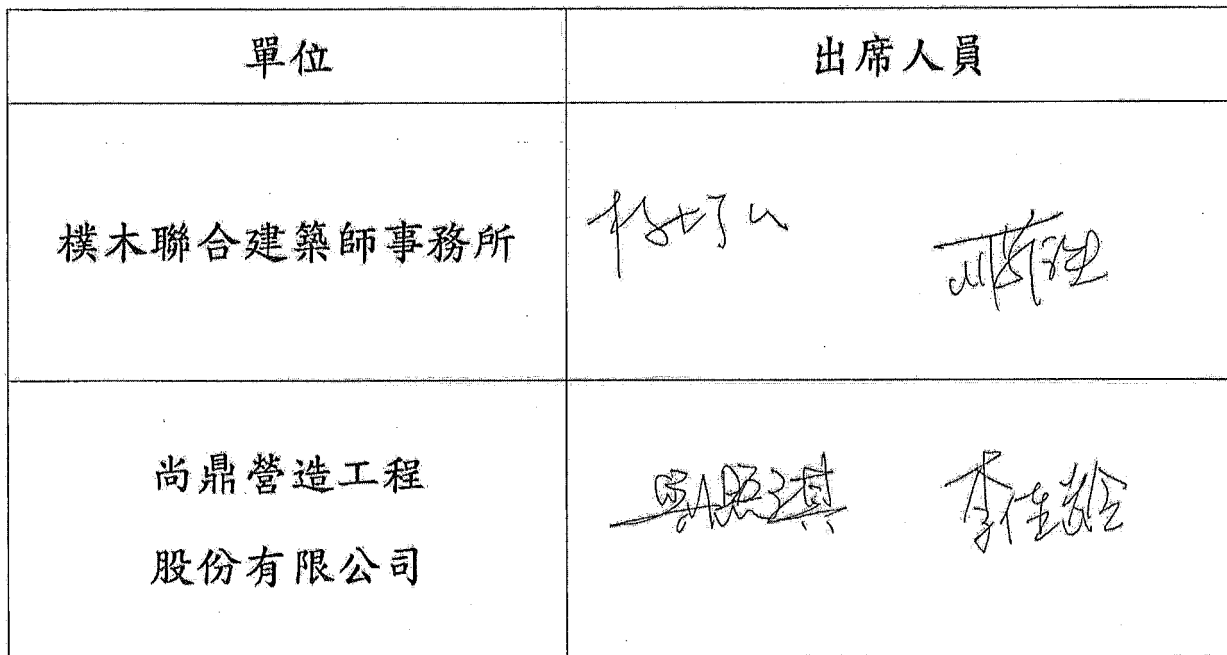 單位 出席人員
樸木聯合建築師事務所
尚鼎營造工程
股份有限公司
李佳玲